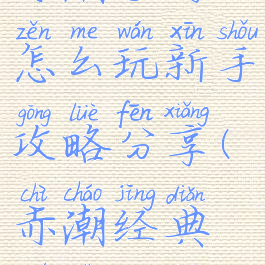 zěn me wán xīn shǒu
怎么玩新手
gōng lüè fēn xiǎng
攻略分享(
chì cháo jīng diǎn
赤潮经典